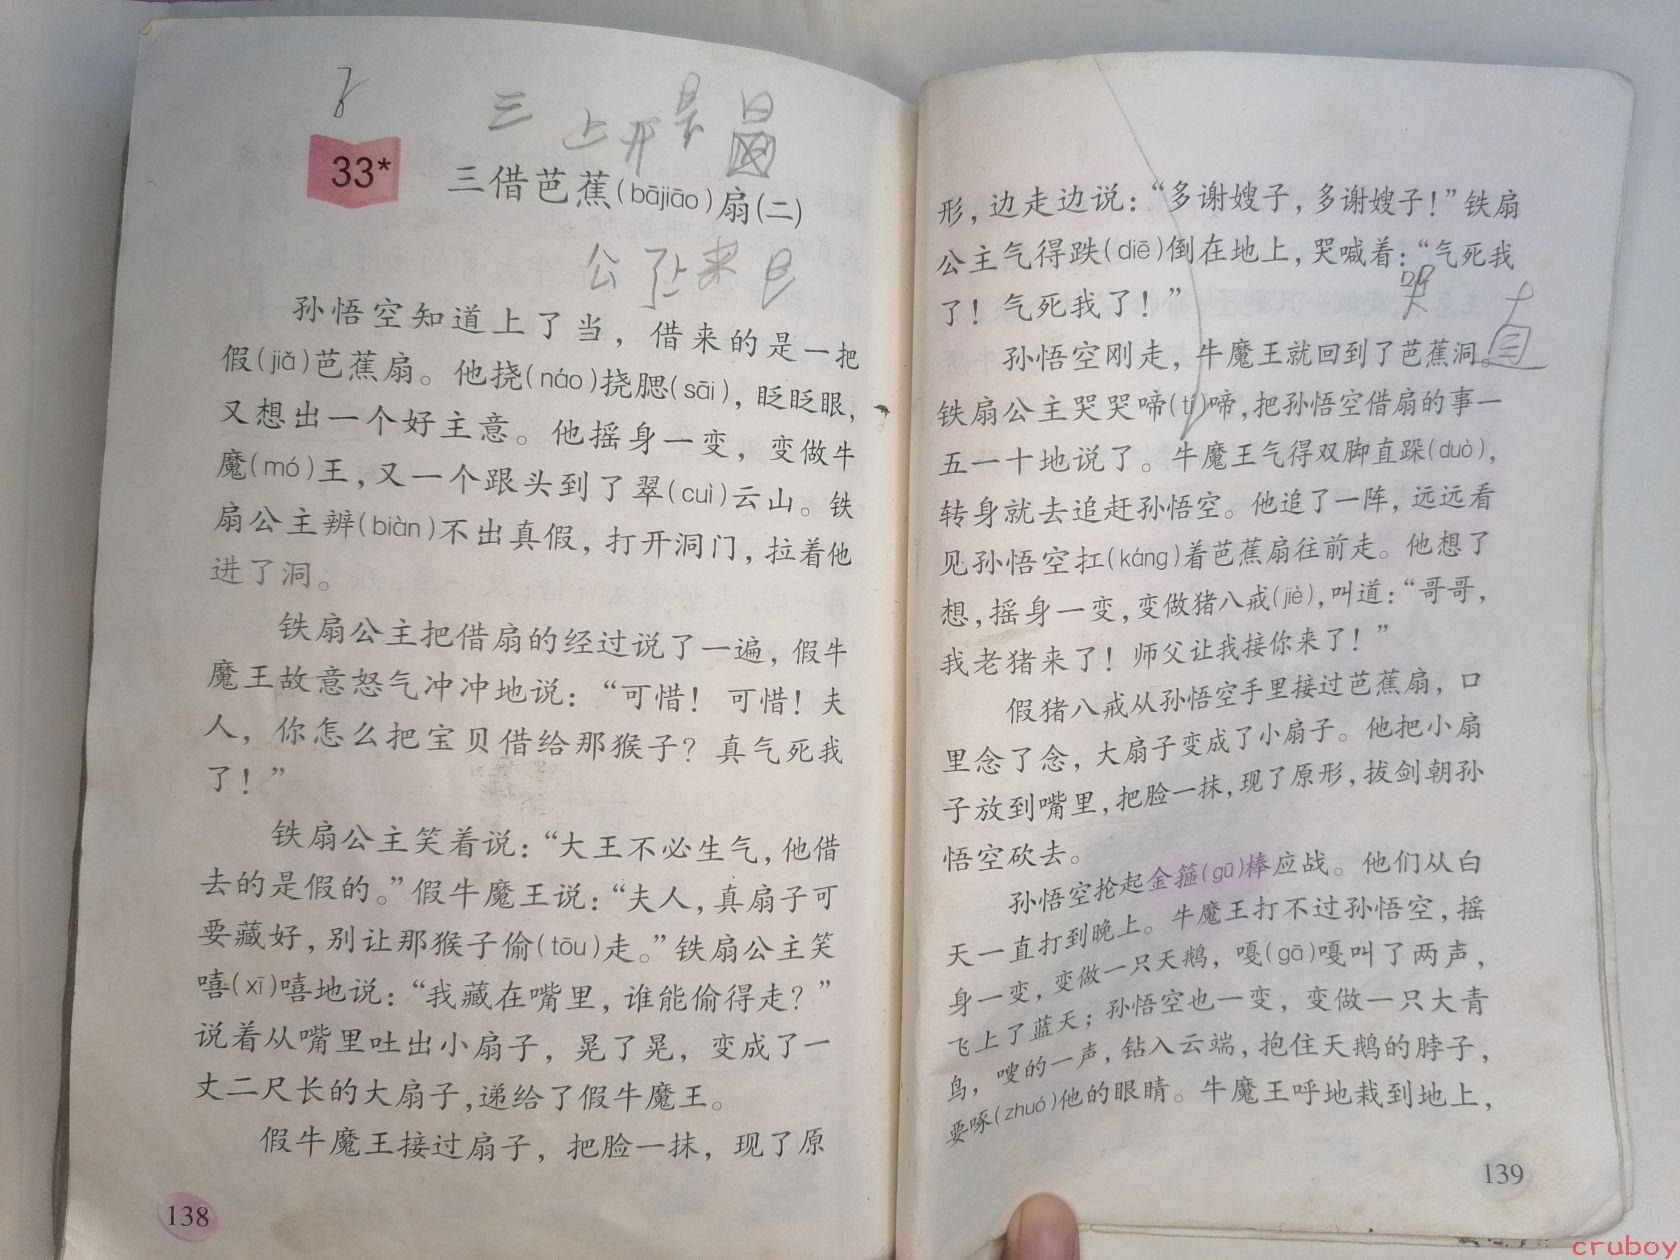 三 上 开
33*
三借芭蕉(bājiāo)扇(二)
公 来
孙悟空知道上了当，借来的是一把
假(jiǎ)芭蕉扇。他挠(náo)挠腮(sāi)，眨眨眼，
又想出一个好主意。他摇身一变，变做牛
魔(mó)王，又一个跟头到了翠(cuì)云山。铁
扇公主辨(biàn)不出真假，打开洞门，拉着他
进了洞。
铁扇公主把借扇的经过说了一遍，假牛
魔王故意怒气冲冲地说：“可惜！可惜！夫
人，你怎么把宝贝借给那猴子？真气死我
了！”
铁扇公主笑着说：“大王不必生气，他借
去的是假的。”假牛魔王说：“夫人，真扇子可
要藏好，别让那猴子偷(tōu)走。”铁扇公主笑
嘻(xī)嘻地说：“我藏在嘴里，谁能偷得走？”
说着从嘴里吐出小扇子，晃了晃，变成了一
丈二尺长的大扇子，递给了假牛魔王。
假牛魔王接过扇子，把脸一抹，现了原
138
形，边走边说：“多谢嫂子，多谢嫂子！”铁扇
公主气得跌(diē)倒在地上，哭喊着：“气死我
了！气死我了！”
哭
孙悟空刚走，牛魔王就回到了芭蕉洞。
铁扇公主哭哭啼(tí)啼，把孙悟空借扇的事一
五一十地说了。牛魔王气得双脚直跺(duò)，
转身就去追赶孙悟空。他追了一阵，远远看
见孙悟空扛(káng)着芭蕉扇往前走。他想了
想，摇身一变，变做猪八戒(jiè)，叫道：“哥哥，
我老猪来了！师父让我接你来了！”
假猪八戒从孙悟空手里接过芭蕉扇，口
里念了念，大扇子变成了小扇子。他把小扇
子放到嘴里，把脸一抹，现了原形，拔剑朝孙
悟空砍去。
孙悟空抡起金箍(gū)棒应战。他们从白
天一直打到晚上。牛魔王打不过孙悟空，摇
身一变，变做一只天鹅，嘎(gā)嘎叫了两声，
飞上了蓝天；孙悟空也一变，变做一只大青
鸟，嗖的一声，钻入云端，抱住天鹅的脖子，
要啄(zhuó)他的眼睛。牛魔王呼地栽到地上，
139
cruboy